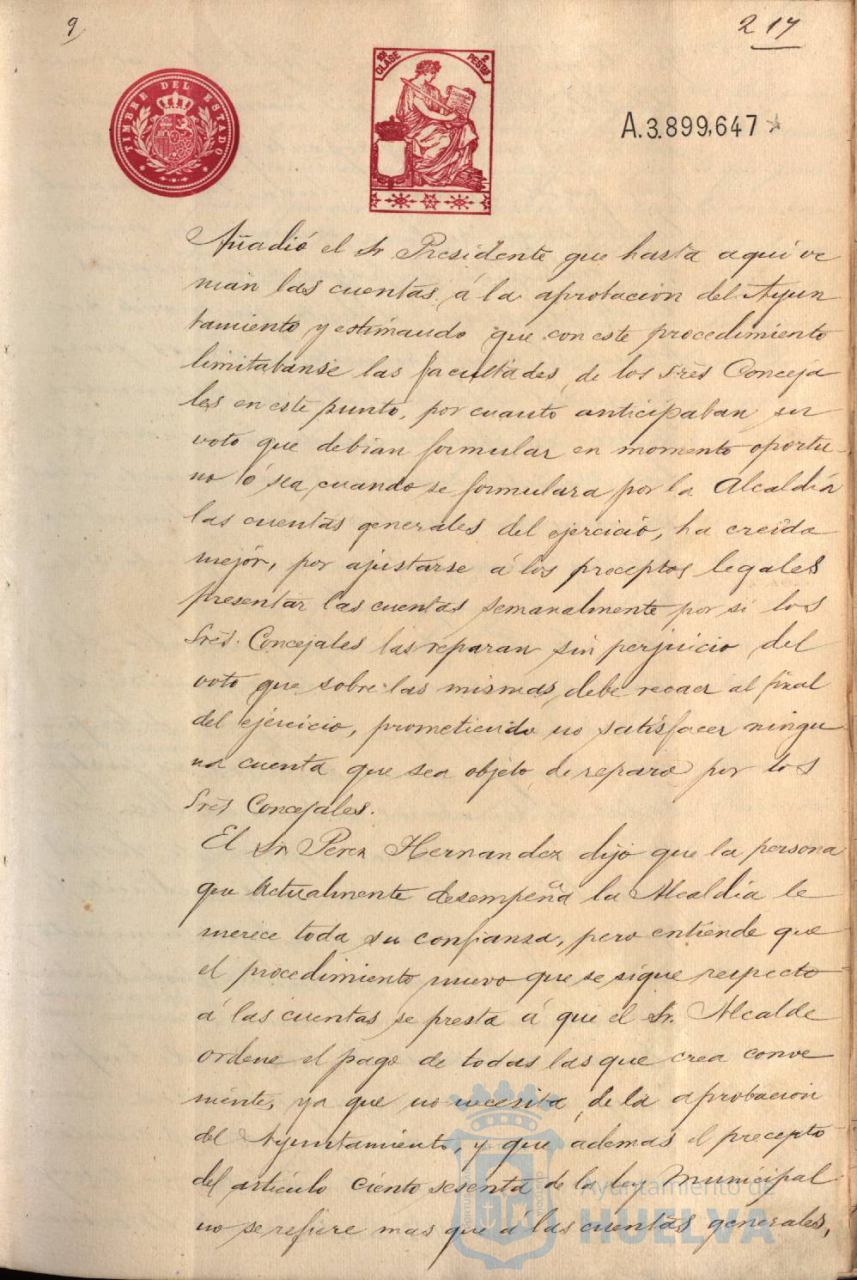 9
217
TIMBRE DEL ESTADO
10ª CLASE
2 PESTAS
A.3.899,647
Añadió el Sr Presidente que hasta aquí ve
nian las cuentas á la aprobación del Ayun
tamiento y estimando que con este procedimiento
limitabanse las facultades de los Sres Conceja
les en este punto, por cuanto anticipaban su
voto que debian formular en momento oportu-
no ó sea, cuando se formulara por la Alcaldía
las cuentas generales del ejercicio, ha creida
mejor, por ajustarse á los preceptos legales
presentar las cuentas semanalmente por si los
Sres. Concejales las reparan sin perjuicio del
voto que sobre las mismas, debe recaer al final
del ejercicio, prometiendo no satisfacer ningu
na cuenta que sea objeto de reparo por los
Sres Concejales.
El Sr. Perez Hernandez dijo que la persona
que actualmente desempeña la Alcaldía le
merece toda su confianza, pero entiende que
el procedimiento nuevo que se sigue respecto
á las cuentas se presta á que el Sr. Alcalde
ordene el pago de todas las que crea conve
niente, ya que no necesita de la aprobacion
del Ayuntamiento, y que ademas el precepto
del artículo ciento sesenta de la ley Municipal
no se refiere mas que á las cuentas generales,
Ayuntamiento de
HUELVA